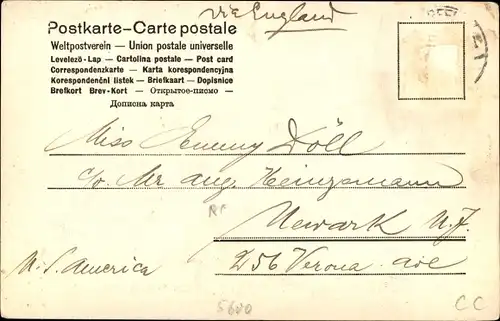 via England
Postkarte – Carte postale
Weltpostverein — Union postale universelle
Levelező-Lap — Cartolina postale — Post card
Correspondenzkarte — Karta korespondencyjna
Korespondenční lístek — Briefkaart — Dopisnice
Brefkort Brev-Kort — Открытое-письмо —
Дописна карта
Miss Emmy Döll
c/o Mr Aug. Heinzmann
Newark N.J.
N. S. America 256 Verona Ave
5600
CC